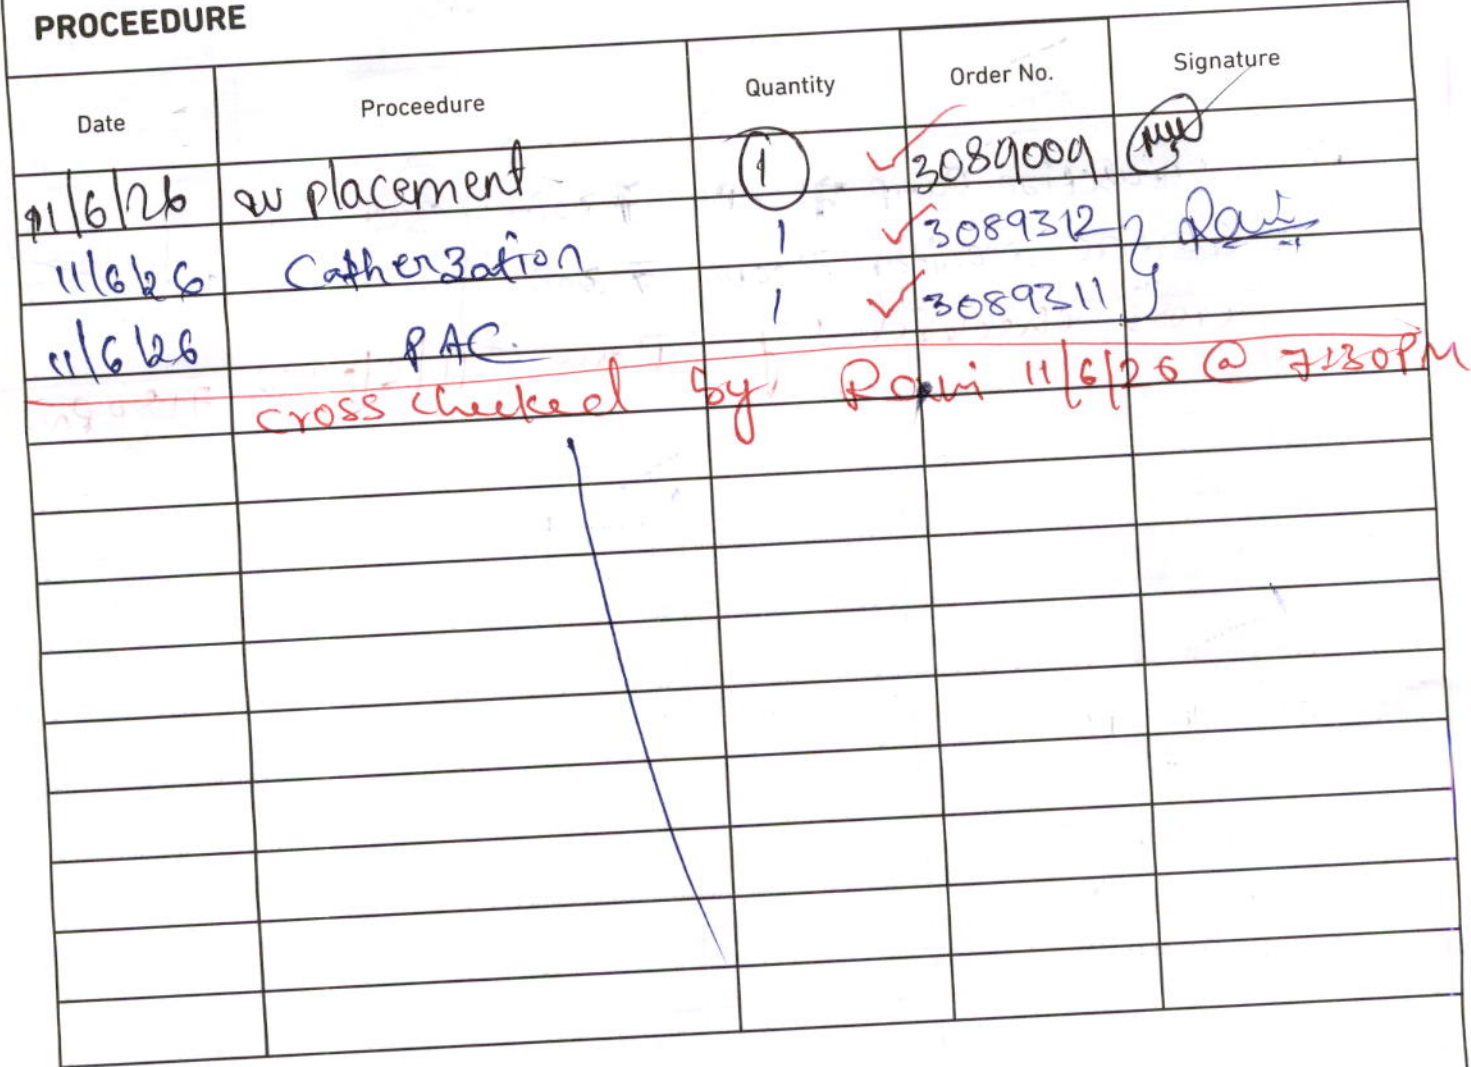 PROCEEDURE
Date Proceedure Quantity Order No. Signature
11/6/26 IV placement 1 3089009
11/6/26 Catherzation 1 3089312 Ravi
11/6/26 PAC 1 3089311
cross checked by Ravi 11/6/26 @ 7:30PM